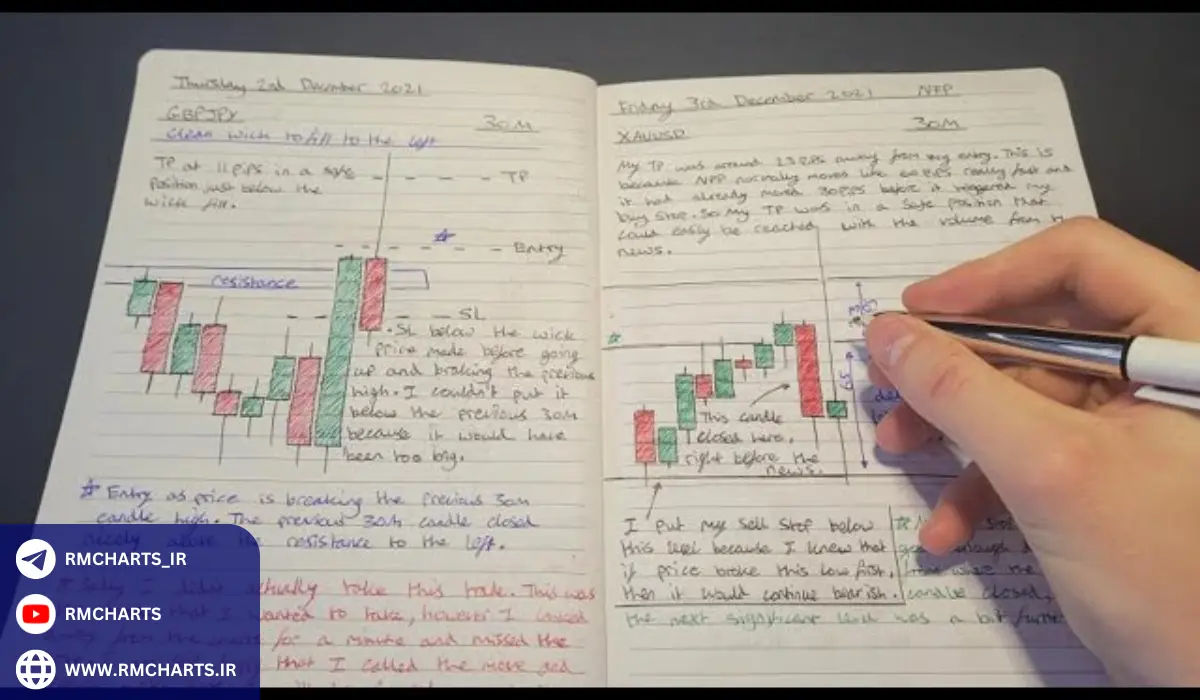 Thursday 2nd December 2021
GBPJPY
30M
Clean wick to fill to the left
TP at 11 pips in a safe
position just below the
wick fill.
TP
Entry
resistance
SL
SL below the wick
price made before going
up and breaking the previous
high. I couldn't put it
below the previous 30M
because it would have
been too big.
Entry as price is breaking the previous 30M
candle high. The previous 30M candle closed
nicely above the resistance to the left.
I actually take this trade. This was
that I wanted to take, however I
from the charts for a minute and missed the
that I called the move and
Friday 3rd December 2021 NFP
XAUUSD
30M
My TP was around 23 pips away from my entry. This is
because NFP normally moves like 60 pips really fast and
it had already moved 30 pips before it triggered my
buy stop. So my TP was in a safe position that
could easily be reached with the volume from
news.
This candle
closed here,
right before the
news.
I put my sell stop below
this level because I knew that
if price broke this low first,
then it would continue bearish.
candle closed,
the next significant wick was a bit further
RMCHARTS_IR
RMCHARTS
WWW.RMCHARTS.IR